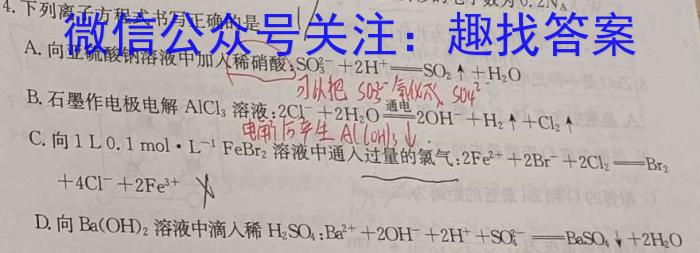 4.下列离子方程式书写正确的是
微信公众号关注：趣找答案
A.向亚硫酸钠溶液中加入稀硝酸:SO₃²⁻+2H⁺══SO₂↑+H₂O
可以把 SO₃²⁻氧化为 SO₄²⁻
B.石墨作电极电解 AlCl₃ 溶液:2Cl⁻+2H₂O 通电══ 2OH⁻+H₂↑+Cl₂↑
电解后产生Al(OH)₃↓.
C.向 1 L 0.1 mol·L⁻¹ FeBr₂ 溶液中通入过量的氯气:2Fe²⁺+2Br⁻+2Cl₂══Br₂
+4Cl⁻+2Fe³⁺
D.向 Ba(OH)₂ 溶液中滴入稀 H₂SO₄:Ba²⁺+2OH⁻+2H⁺+SO₄²⁻══BaSO₄↓+2H₂O